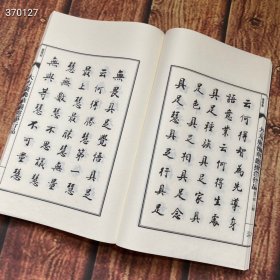 370127
云何得智為先導身
語意業云何得生處
具足種族具足家具
足色具足相具足念
具足慧具足行具足
無畏具足覺悟具足
云何得勝慧第一慧
最上慧最勝慧無量
慧無數慧不思議慧
無與等慧不可量慧